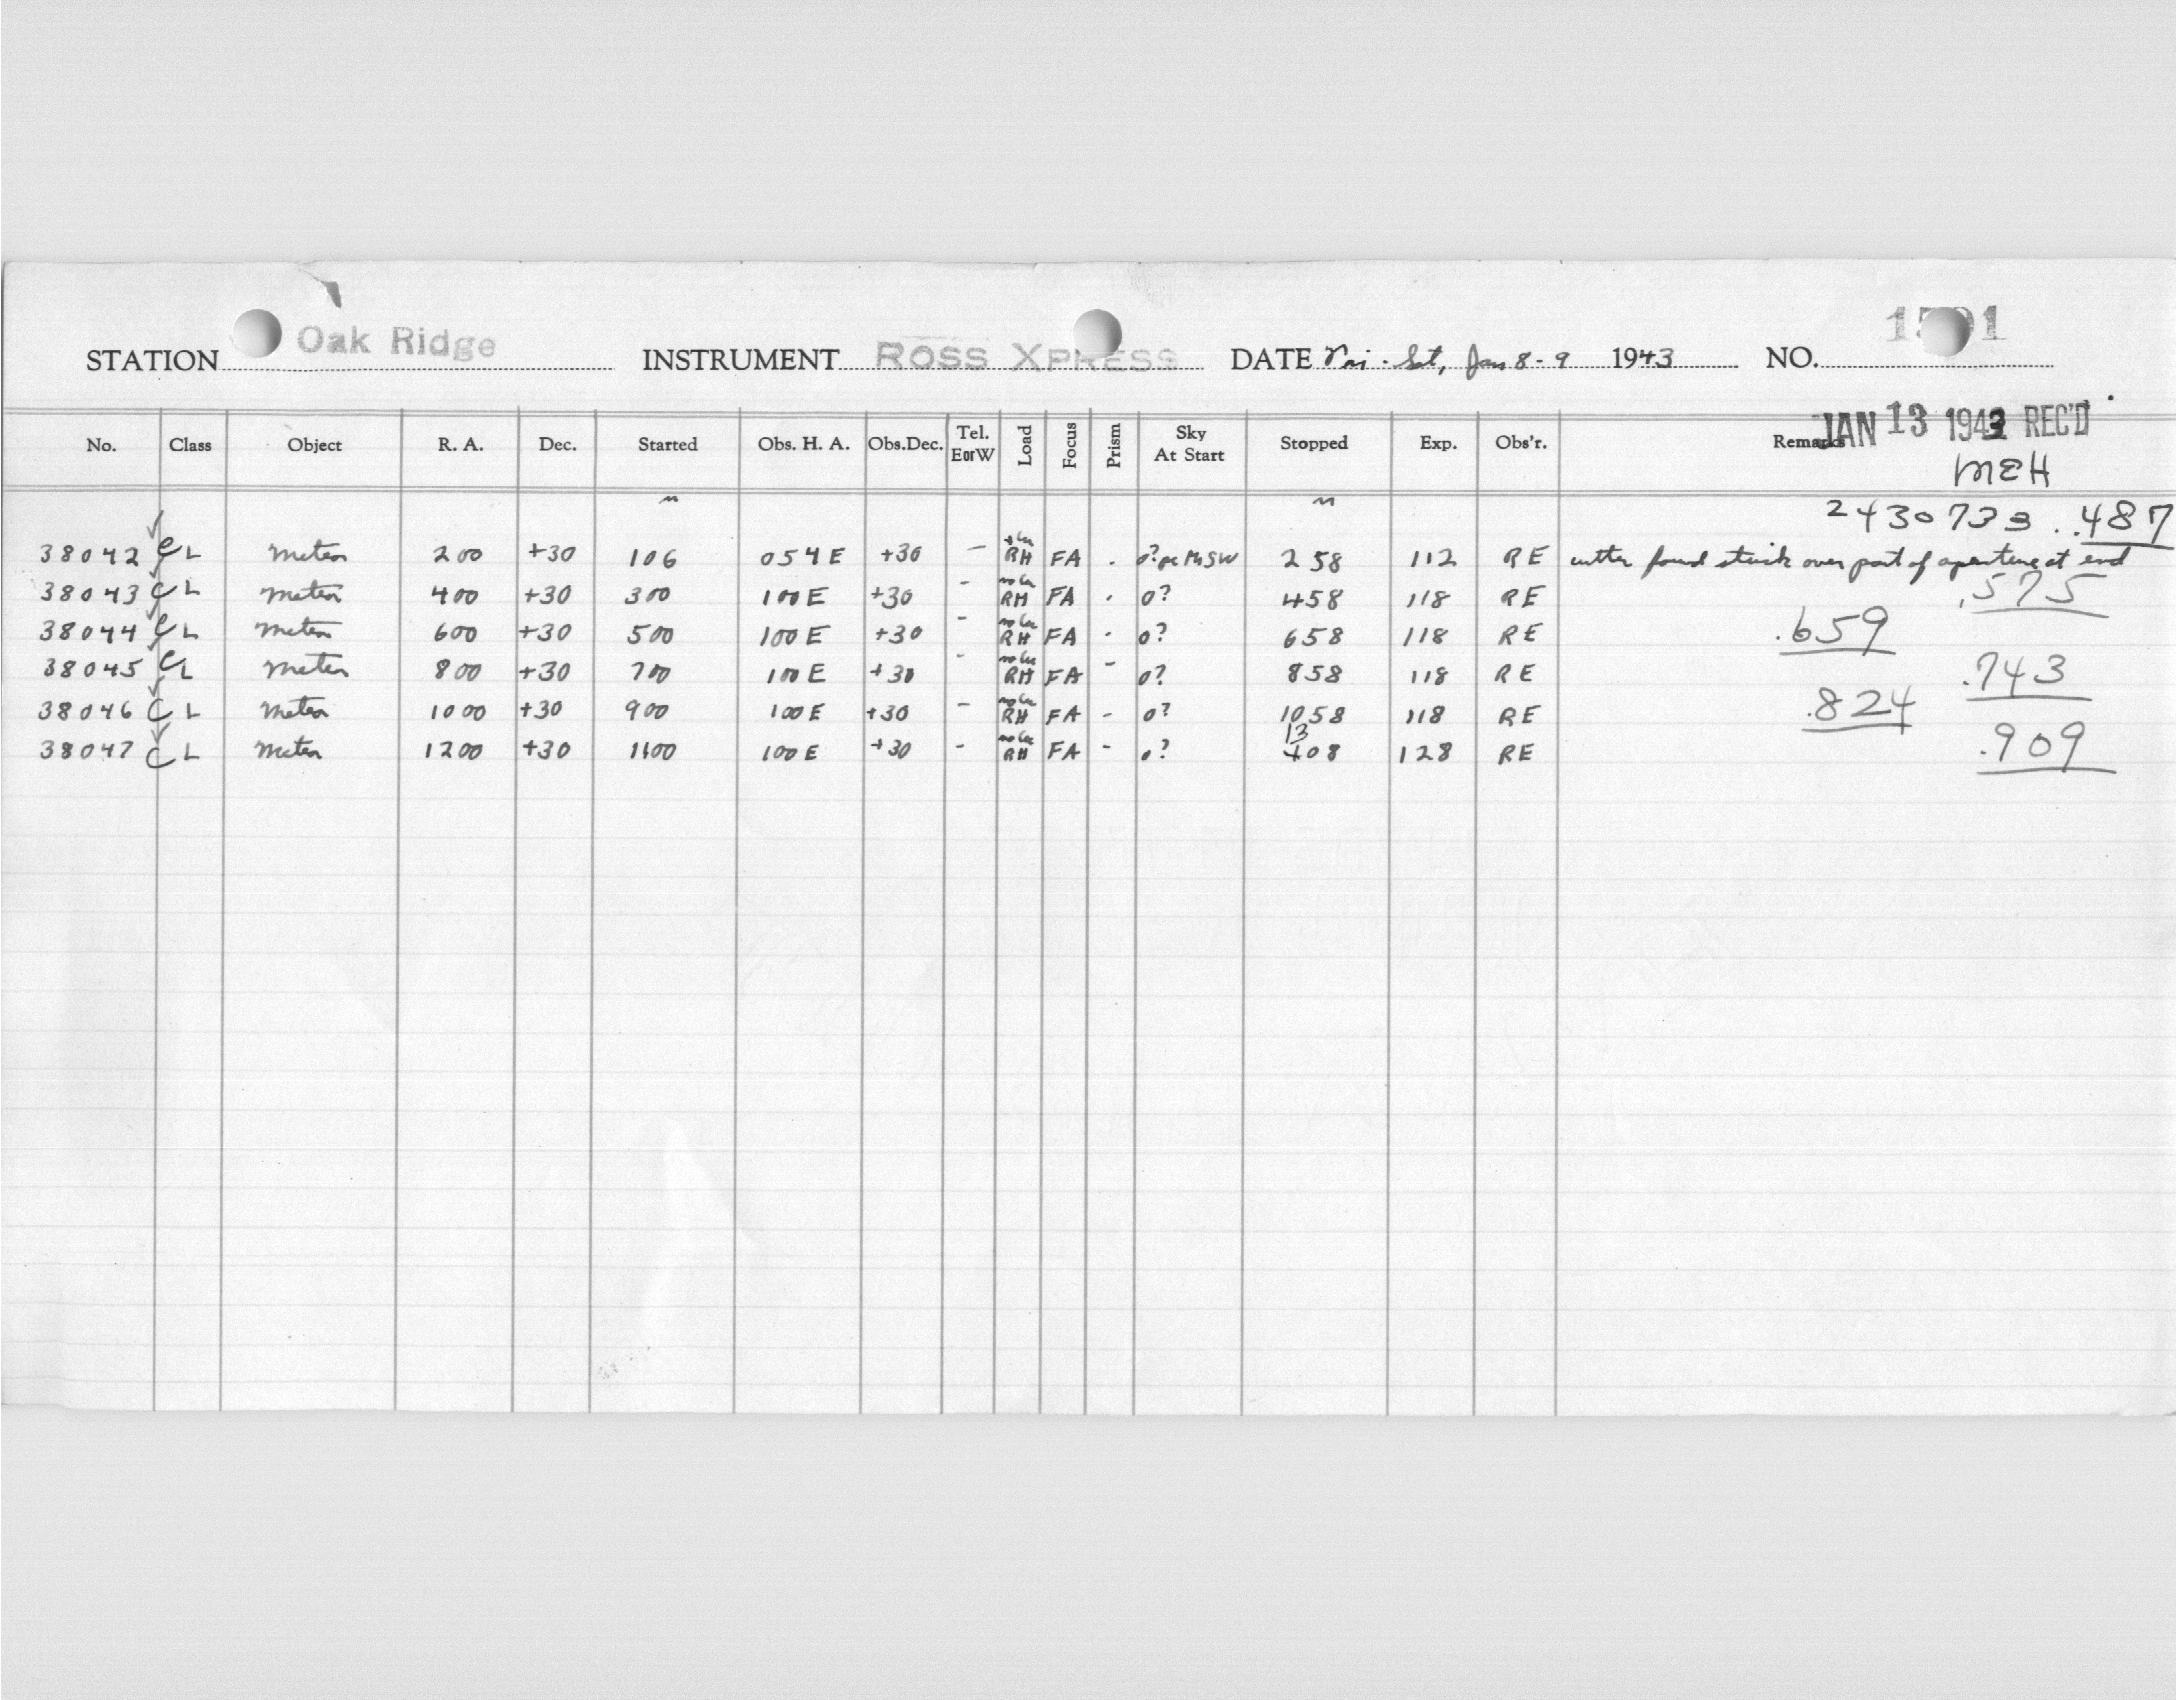 1591
STATION Oak Ridge INSTRUMENT ROSS XPRESS DATE Fri - Sat, Jan 8-9 1943 NO.
JAN 13 1943 REC'D
No. Class Object R. A. Dec. Started Obs. H. A. Obs.Dec. Tel. EorW Load Focus Prism Sky At Start Stopped Exp. Obs'r. Remarks
MEH
2430733 .487
38042 CL Meteor 200 +30 106 054E +30 - RH FA . 0? 258 112 RE cutter found stuck over part of aperture at end
.575
38043 CL Meteor 400 +30 300 100E +30 - RH FA . 0? 458 118 RE
.659
38044 CL Meteor 600 +30 500 100E +30 - RH FA - 0? 658 118 RE
.743
38045 CL Meteor 800 +30 700 100E +30 - RH FA - 0? 858 118 RE
.824
38046 CL Meteor 1000 +30 900 100E +30 - RH FA - 0? 1058 118 RE
13
38047 CL Meteor 1200 +30 1100 100E +30 - RH FA - 0? 108 128 RE
.909